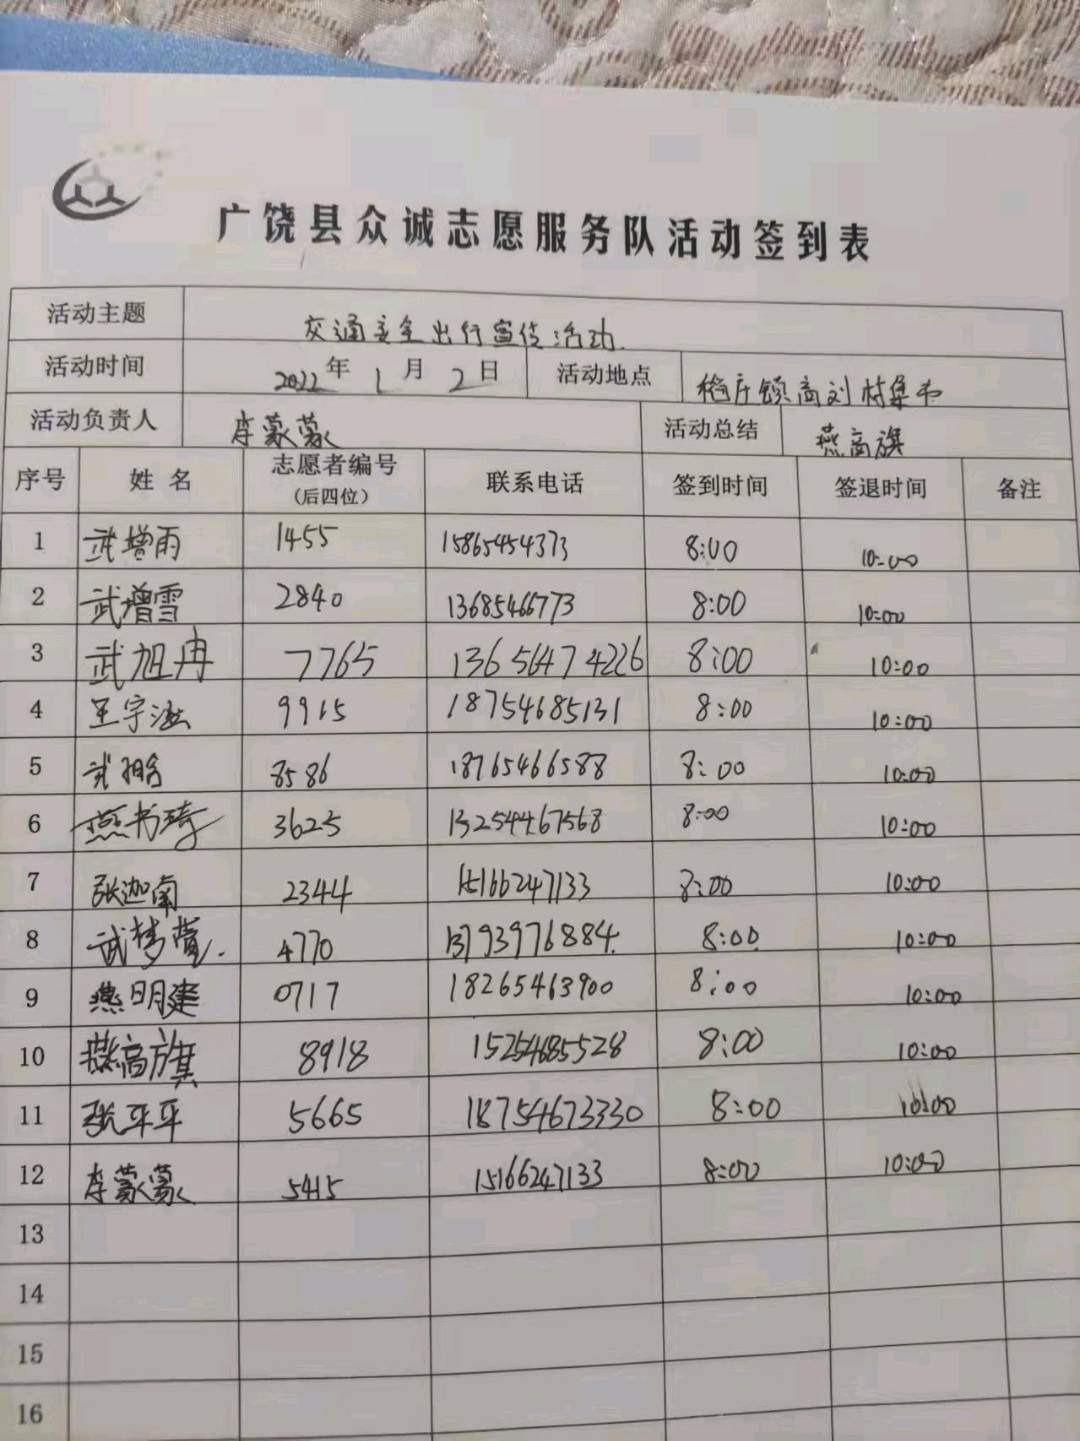 广饶县众诚志愿服务队活动签到表
活动主题 交通安全出行宣传活动
活动时间 2022年1月2日 活动地点 稻庄镇高刘村集市
活动负责人 李蒙蒙 活动总结 燕高旗
序号 姓名 志愿者编号 联系电话 签到时间 签退时间 备注
(后四位)
1 武增雨 1455 15865454373 8:00 10:00
2 武增雪 2840 13685466773 8:00 10:00
3 武旭冉 7765 13656474226 8:00 10:00
4 王宇涵 9915 18754685131 8:00 10:00
5 武 8586 18765466588 8:00 10:00
6 燕书琦 3625 13254467568 8:00 10:00
7 张迦南 2344 15166247133 8:00 10:00
8 武梦萱. 4770 13793976884. 8:00 10:00
9 燕明建 0717 18265463900 8:00 10:00
10 燕高旗 8918 15254685528 8:00 10:00
11 张平平 5665 18754673330 8:00 10:00
12 李蒙蒙 5415 15166247133 8:00 10:00
13
14
15
16